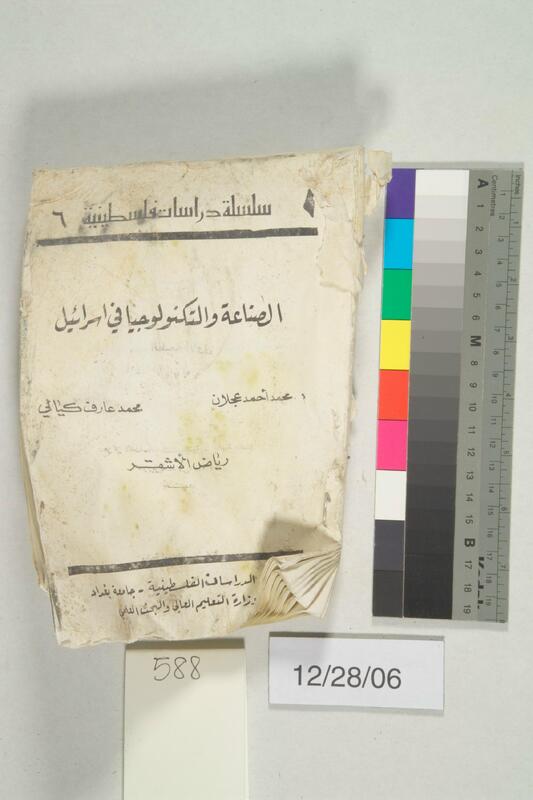 سلسلة دراسات فلسطينية ٦
الصناعة والتكنولوجيا في اسرائيل
د. محمد أحمد عجلان محمد عارف كيالي
رياض الأشقر
الدراسات الفلسطينية - جامعة بغداد
وزارة التعليم العالي والبحث العلمي
588
12/28/06
inches
Centimetres
A 1 2 3 4 5 6 M 8 9 10 11 12 13 14 15 B 17 18 19